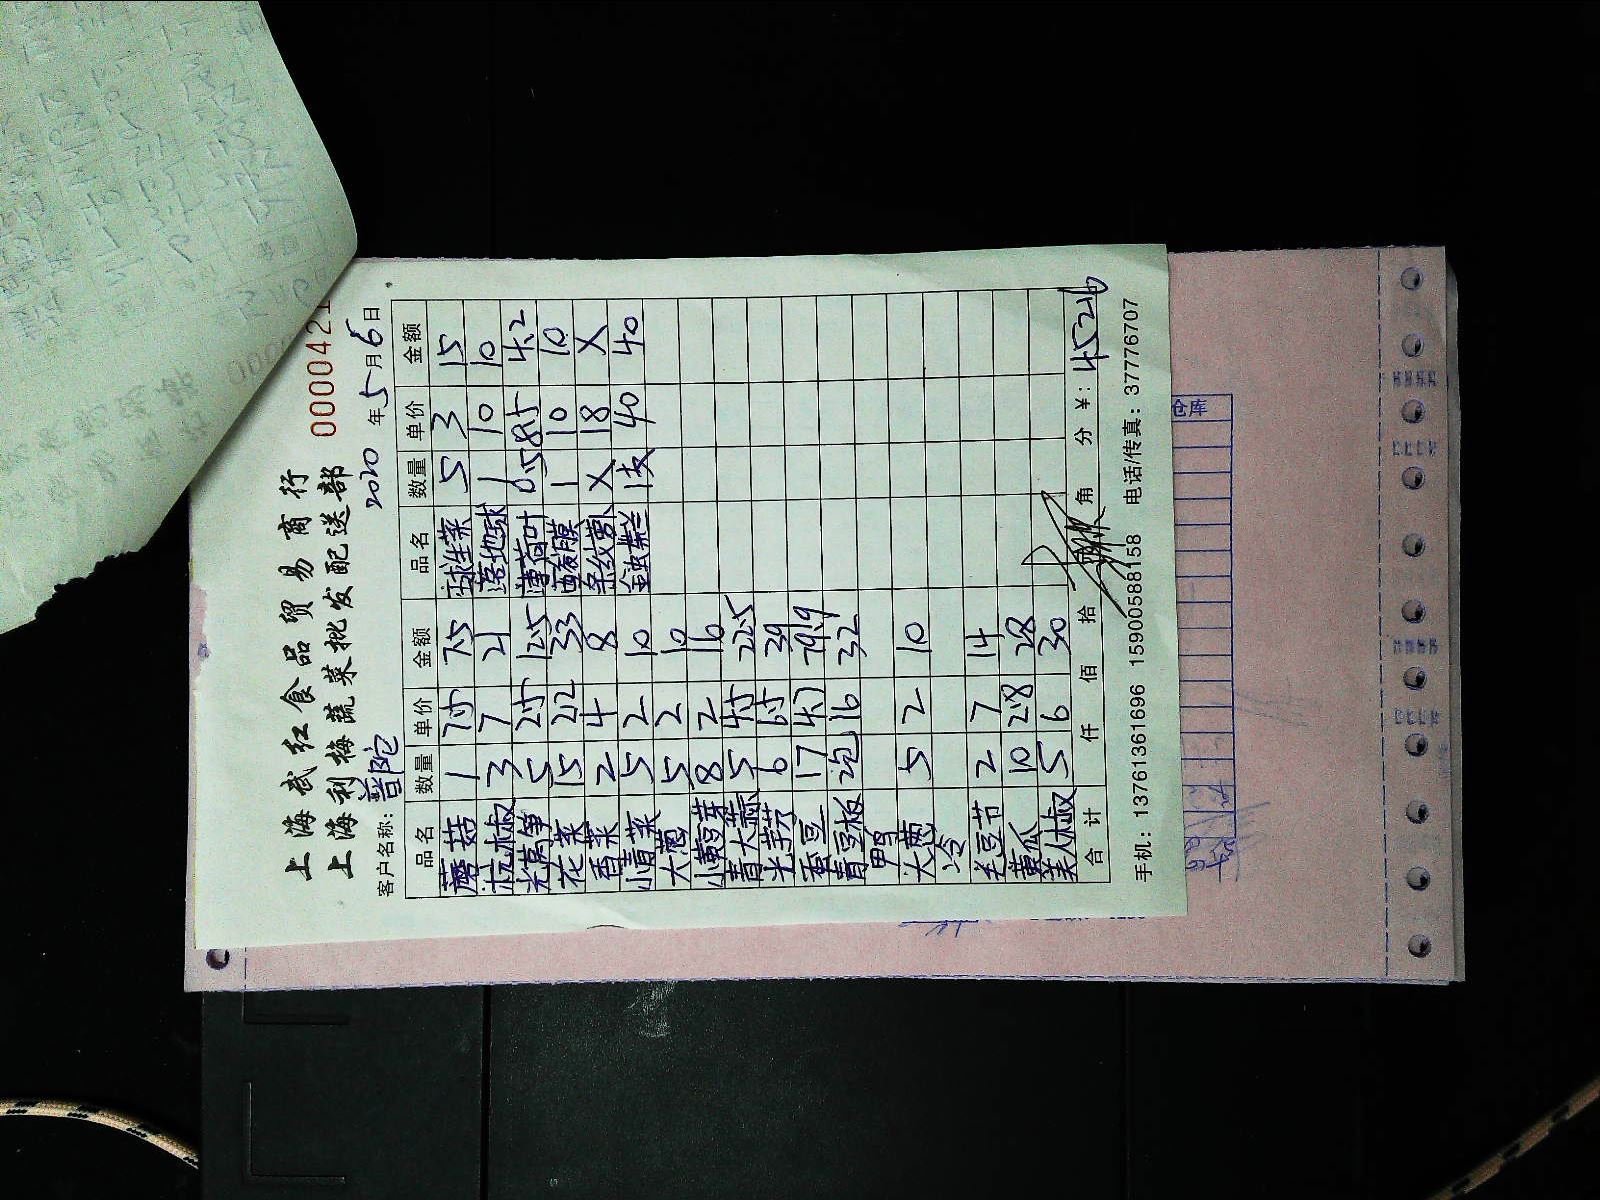 上海武红食品贸易商行
上海利梅蔬菜批发配送部
0000421
客户名称: 普陀
2020 年 5 月 6 日
品名 数量 单价 金额 品名 数量 单价 金额
蘑菇 1 7.5 7.5 球生菜 5 3 15
杭椒 3 7 21 1 10 10
光莴笋 5 2.5 12.5 薄荷叶 0.5 8.5 4.2
花菜 15 2.2 33 1 10 10
香菜 2 4 8 杂纹萝卜 X 18 X
小青菜 5 2 10 40 40
大葱 5 2 10
小黄豆芽 8 2 16
青大蒜 5 4.5 22.5
光芋艿 6 6.5 39
蚕豆 17 4.7 79.9
青豆板 2包 16 32
鸭
大葱 5 2 10
冷
毛豆节 2 7 14
黄瓜 10 2.8 28
美人椒 5 6 30
合计 仟 佰 拾 角 分 ¥: 452.6
手机: 13761361696 15900588158 电话/传真: 37776707
仓库